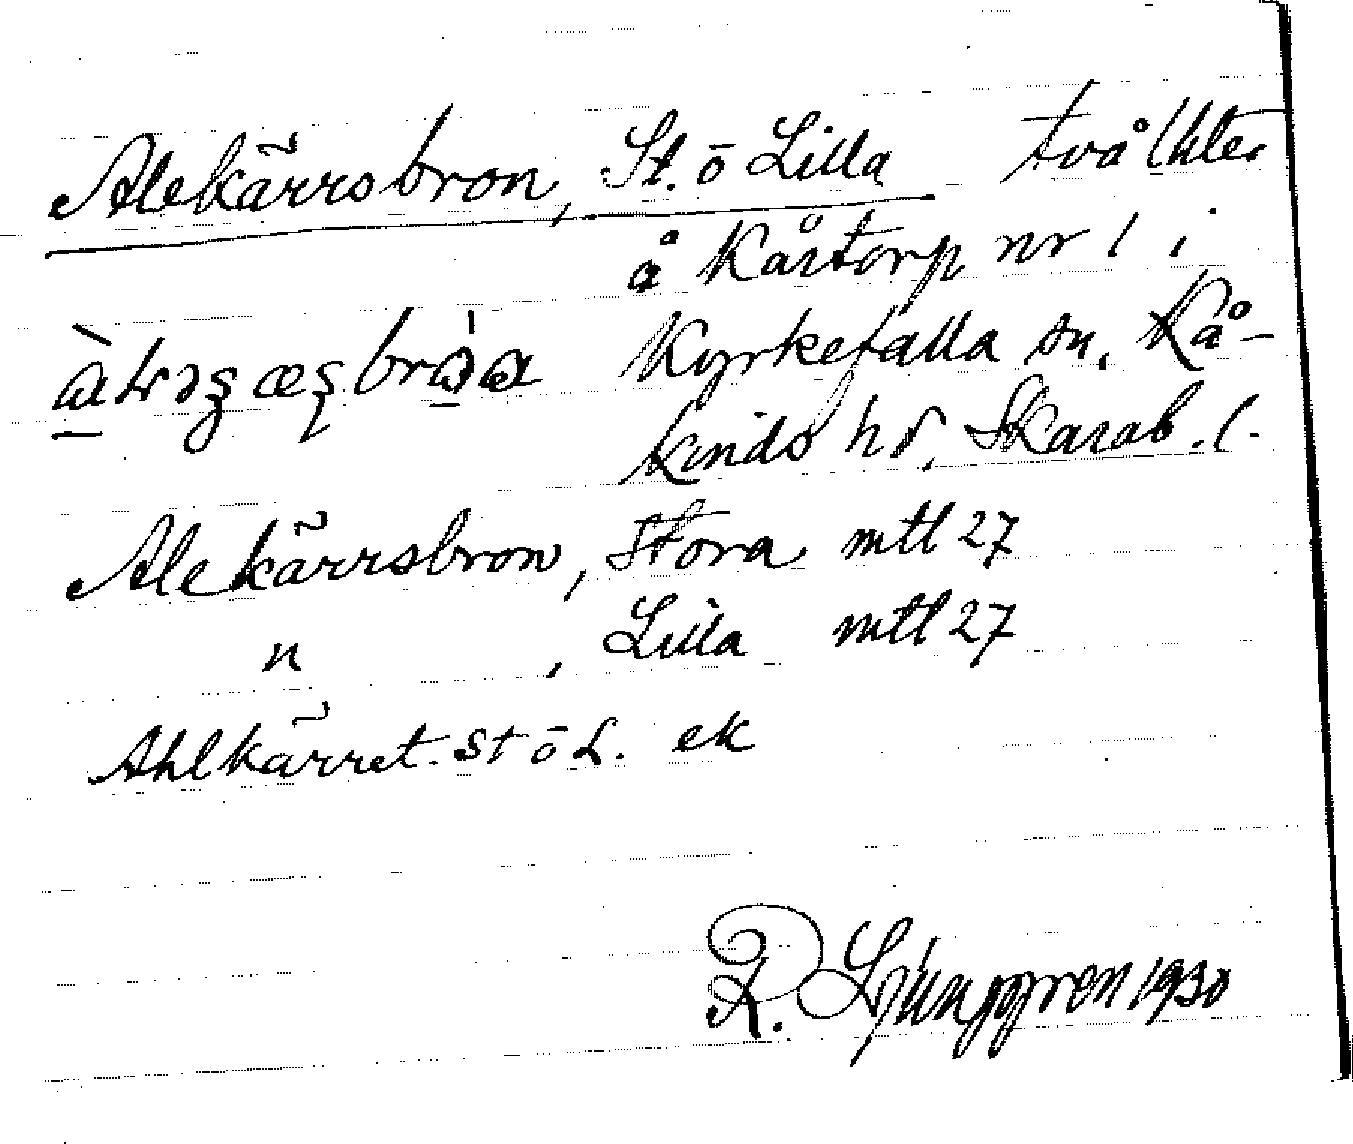 Alekärrsbron, St. o Lilla två lhter
å Kåstorp nr 1 i
Kyrkefalla sn, Kå-
kinds hd, Skarab. l.
Alekärrsbron, Stora mtl 27
" , Lilla mtl 27
Ahlkärret. St o L. ek
R. Ljunggren 1930